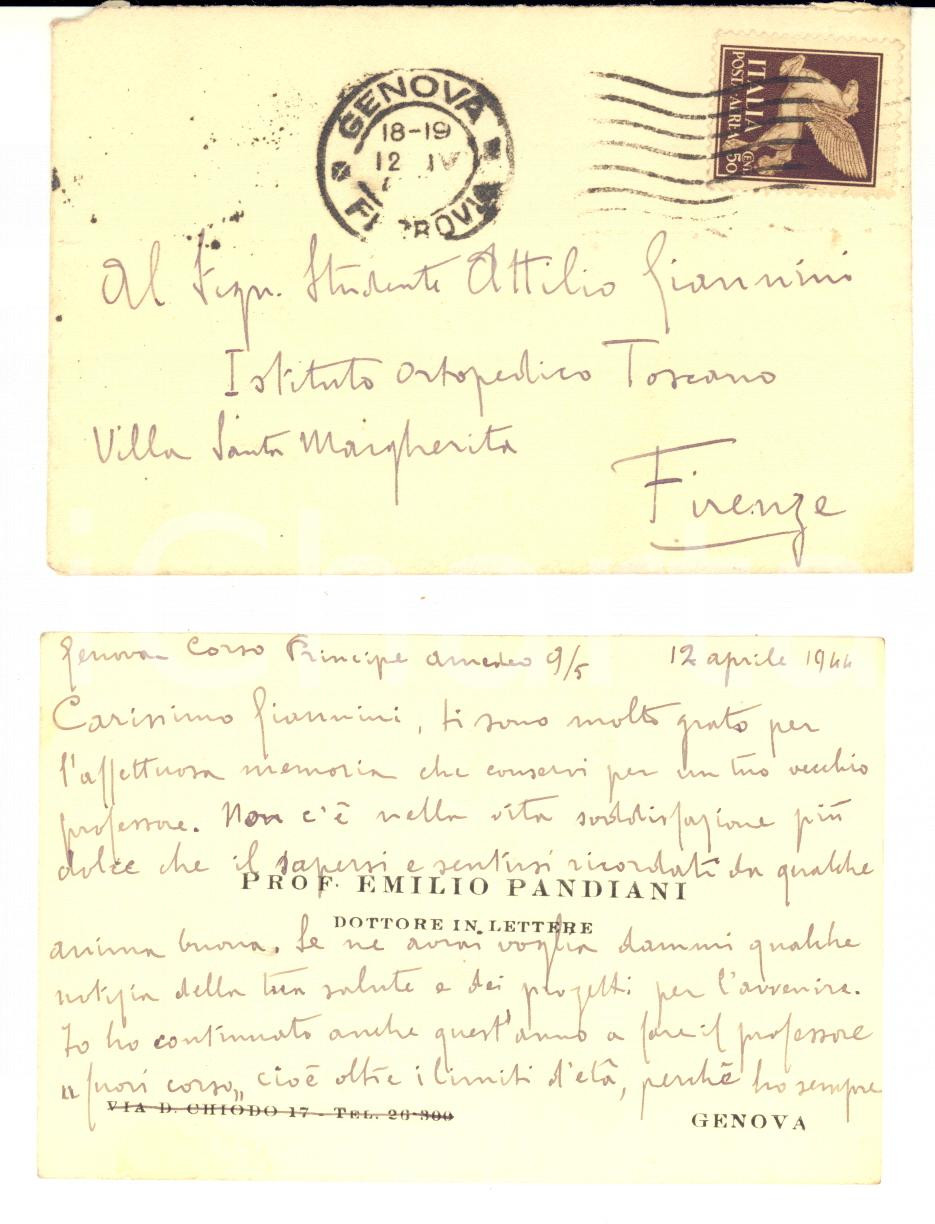 GENOVA
18-19
12 IV
FERROVIA
ITALIA
POSTA AEREA
CENT. 50
Al Sign. Studente Attilio Giannini
Istituto Ortopedico Toscano
Villa Santa Margherita
Firenze
Genova Corso Principe Amedeo 9/5 12 aprile 1944
Carissimo Giannini, ti sono molto grato per
l'affettuosa memoria che conservi per un tuo vecchio
professore. Non c'è nella vita soddisfazione più
dolce che il sapersi e sentirsi ricordati da qualche
PROF. EMILIO PANDIANI
DOTTORE IN LETTERE
anima buona. Se ne avrai voglia dammi qualche
notizia della tua salute e dei progetti per l'avvenire.
Io ho continuato anche quest'anno a fare il professore
"fuori corso" cioè oltre i limiti d'età, perché ho sempre
VIA D. CHIODO 17 - TEL. 26-300
GENOVA